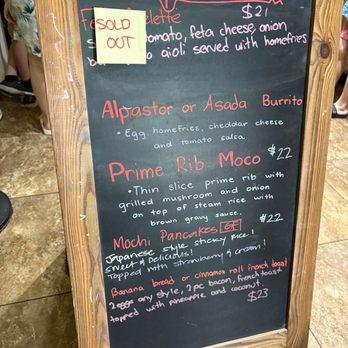 SOLD
OUT
$21
tomato, feta cheese, onion
aioli served with homefries
Alpastor or Asada Burrito
• Egg, homefries, cheddar cheese
and tomato salsa.
Prime Rib Moco $22
• Thin slice prime rib with
grilled mushroom and onion
on top of steam rice with
brown gravy sauce.
Mochi Pancakes GF $22
Japanese style sticky rice!
Sweet & Delicious!
Topped with strawberry & cream!
Banana bread or cinnamon roll french toast
2 eggs any style, 2 pc bacon, french toast
topped with pineapple and coconut.
$23